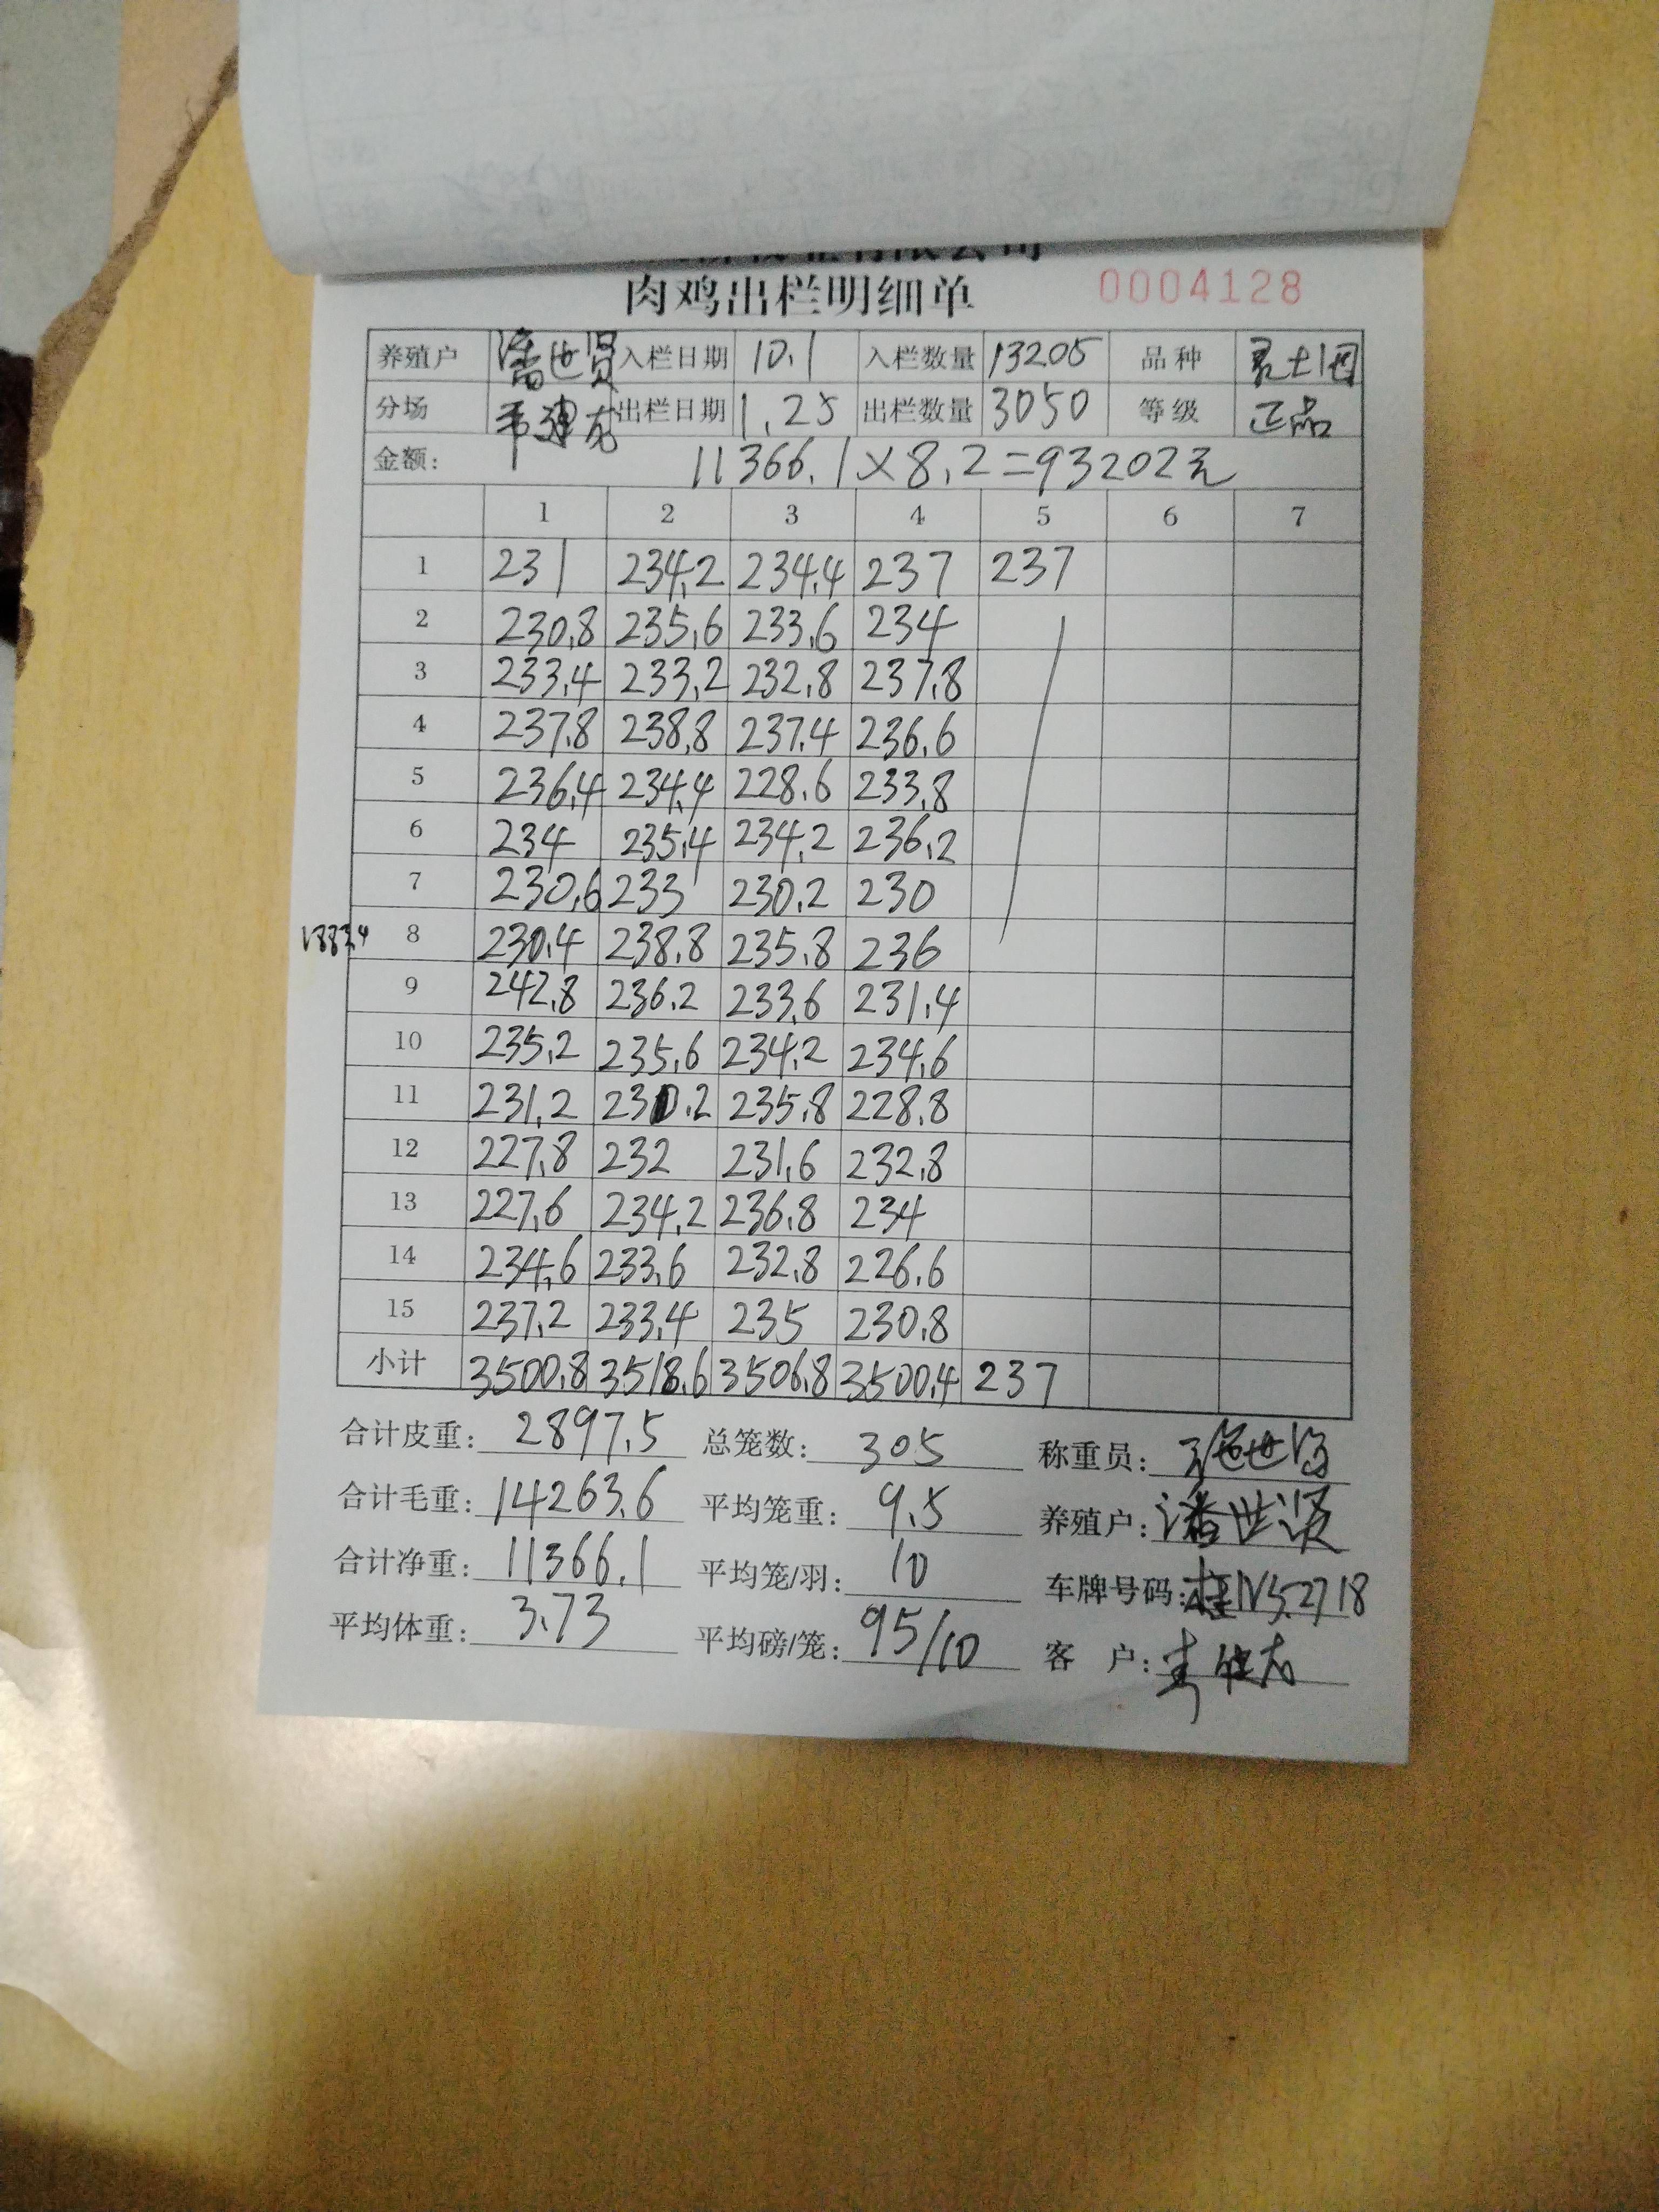 有限公司
肉鸡出栏明细单 0004128
养殖户 潘世贤 入栏日期 10.1 入栏数量 13205 品种
分场 韦建龙 出栏日期 1.25 出栏数量 3050 等级 正品
金额: 11366.1×8.2=93202元
1 2 3 4 5 6 7
1 231 234.2 234.4 237 237
2 230.8 235.6 233.6 234
3 233.4 233.2 232.8 237.8
4 237.8 238.8 237.4 236.6
5 236.4 234.4 228.6 233.8
6 234 235.4 234.2 236.2
7 230.6 233 230.2 230
8 230.4 238.8 235.8 236
9 242.8 236.2 233.6 231.4
10 235.2 235.6 234.2 234.6
11 231.2 230.2 235.8 228.8
12 227.8 232 231.6 232.8
13 227.6 234.2 236.8 234
14 234.6 233.6 232.8 226.6
15 237.2 233.4 235 230.8
小计 3500.8 3518.6 3506.8 3500.4 237
合计皮重: 2897.5 总笼数: 305 称重员:
合计毛重: 14263.6 平均笼重: 9.5 养殖户: 潘世贤
合计净重: 11366.1 平均笼/羽: 10 车牌号码:
平均体重: 3.73 平均磅/笼: 95/10 客户: